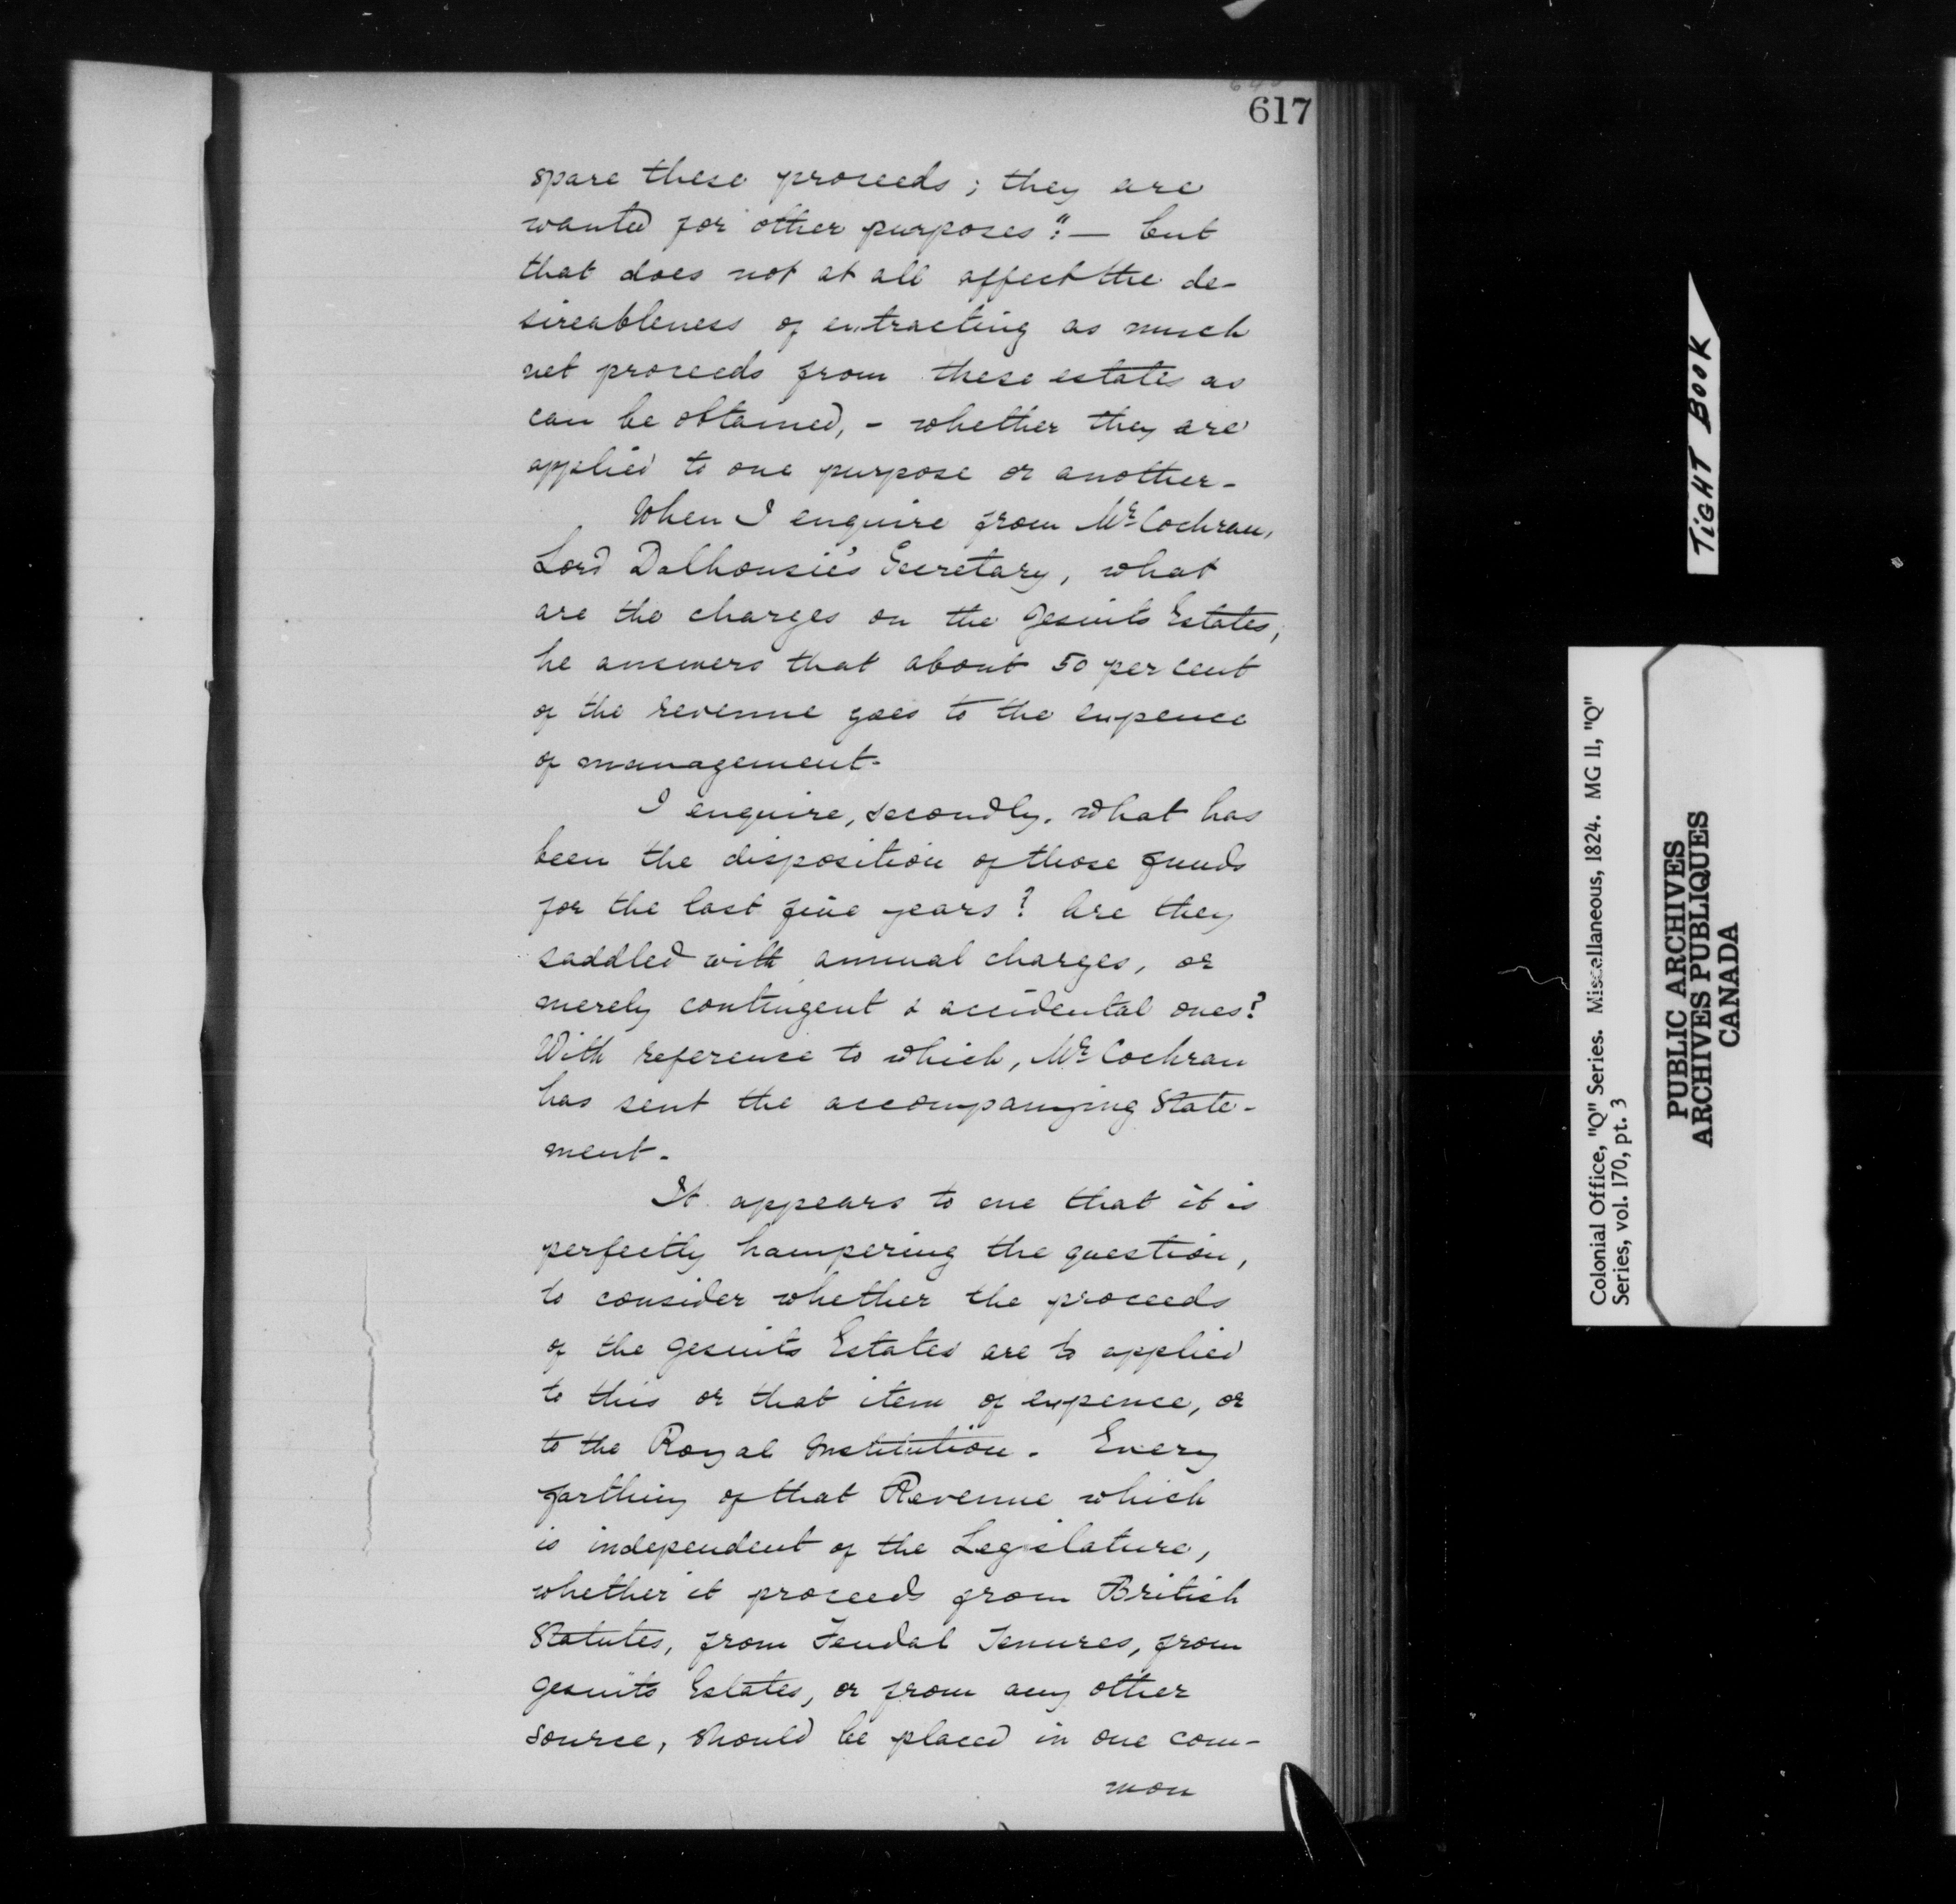 617
spare these proceeds; they are
wanted for other purposes":— but
that does not at all affect the de-
sireableness of extracting as much
net proceeds from these estates as
can be obtained, - whether they are
applied to one purpose or another-
When I enquire from Mr Cochran,
Lord Dalhousie's Secretary, what
are the charges on the Jesuits Estates,
he answers that about 50 per cent
of the revenue goes to the expence
of management-
I enquire, secondly, what has
been the disposition of those funds
for the last five years? Are they
saddled with annual charges, or
merely contingent & accidental ones?
With reference to which, Mr Cochran
has sent the accompanying State-
ment-
It appears to me that it is
perfectly hampering the question,
to consider whether the proceeds
of the Jesuits Estates are to applied
to this or that item of expence, or
to the Royal Institution. Every
farthing of that Revenue which
is independent of the Legislature,
whether it proceeds from British
Statutes, from Feudal Tenures, from
Jesuits Estates, or from any other
source, should be placed in one com-
mon
TIGHT BOOK
Colonial Office, "Q" Series. Miscellaneous, 1824. MG 11, "Q"
Series, vol. 170, pt. 3
PUBLIC ARCHIVES
ARCHIVES PUBLIQUES
CANADA